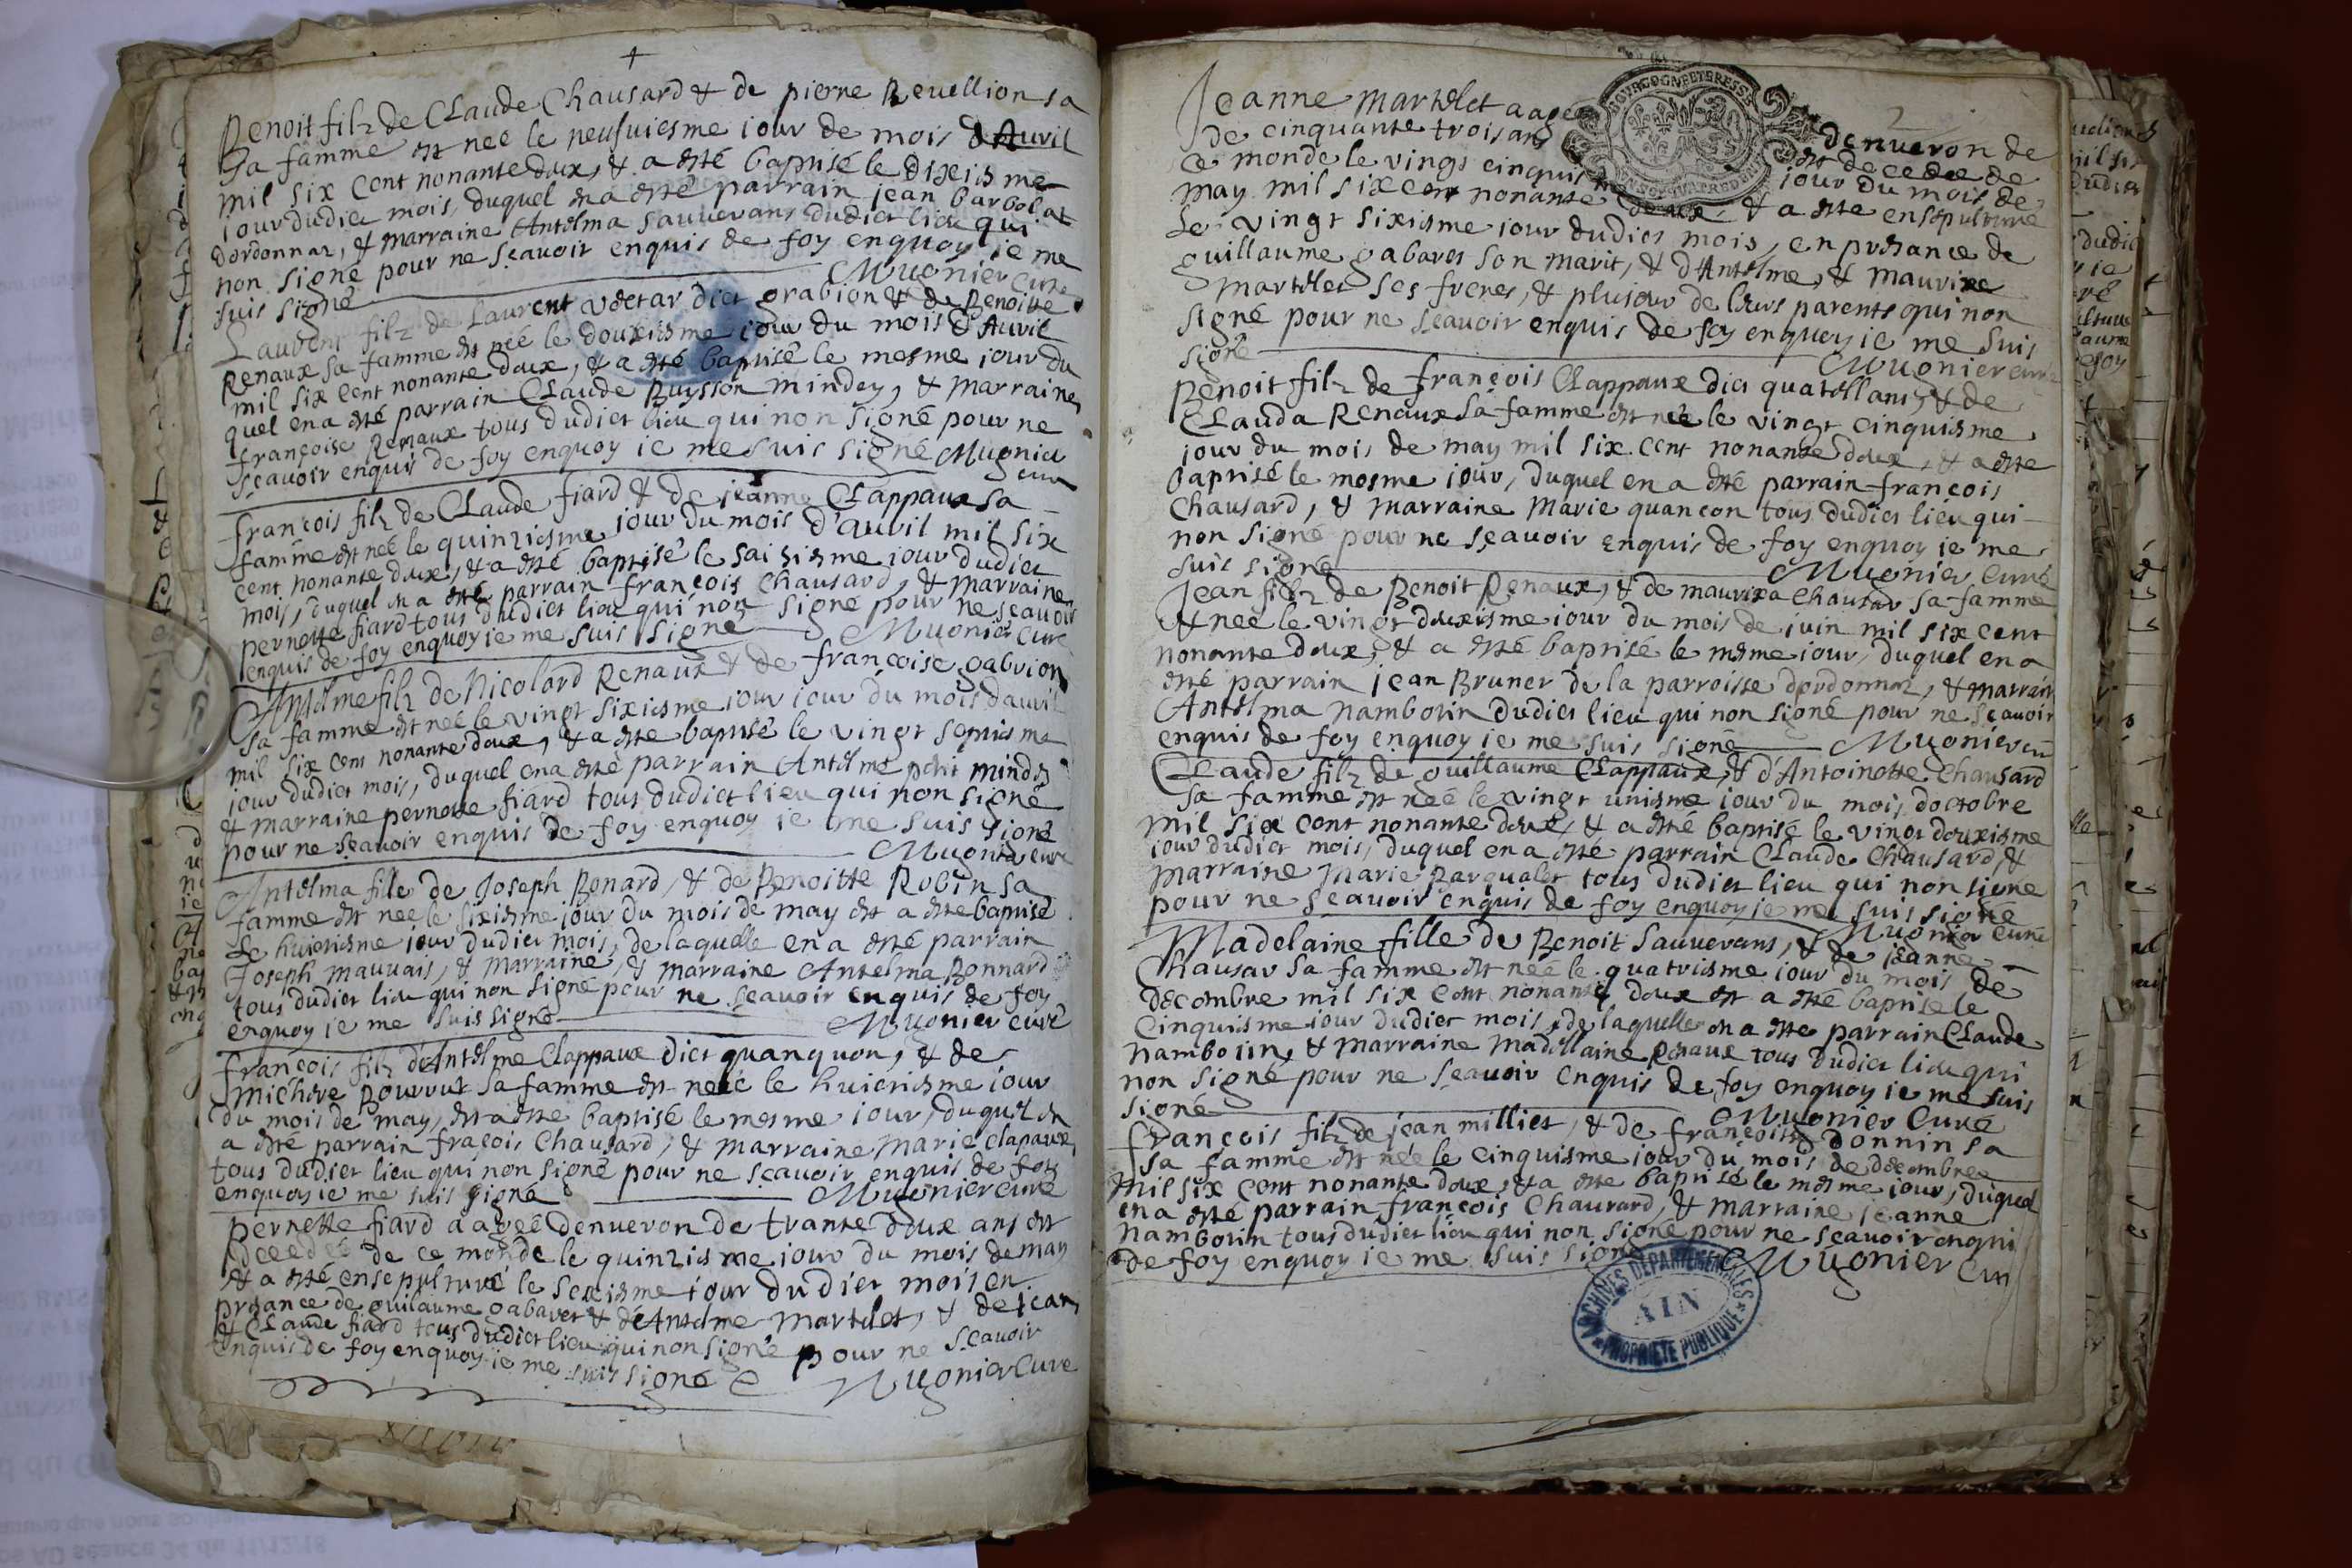 Benoit filz de Claude Chausard & de pierne Reuellion sa
sa famme est neé le neufuiesme iour de mois d'Auril
mil six cent nonante doux, & a esté baptisé le dixiesme
iour dudict mois, duquel en a esté parrain jean barbolat
dordonnaz, & marraine Antelma Sauuerans dudict lieu qui
non signé pour ne sçauoir enquis de foy enquoy ie me
suis signé Mugnier Curé
Laurent filz de Laurent dict grabion & de Benoitte
Renaux sa famme est neé le douxiesme iour du mois d'Auril
mil six cent nonante doux, & a esté baptisé le mesme iour du
quel en a esté parrain Claude Buysson mindey, & marraine
françoise Renaux tous dudict lieu qui non signé pour ne
sçauoir enquis de foy enquoy ie me suis signé Mugnier
cure
françois filz de Claude fiard & de jeanne Clappaux sa
famme est neé le quinziesme iour du mois d'auril mil six
cent nonante doux, & a esté baptisé le saiziesme iour dudict
mois, duquel en a esté parrain françois Chausard, & marraine
pernette fiard tous dudict lieu qui non signé pour ne sçauoir
enquis de foy enquoy ie me suis signé Mugnier Curé
Antelme filz de Nicolard Renaux & de françoise gabrion
sa famme est neé le vingt sixiesme iour iour du mois dauril
mil six cent nonante doux, & a esté baptisé le vingt septiesme
iour dudict mois, duquel en a esté parrain Antelme petit mindey
& marraine pernette fiard tous dudict lieu qui non signé
pour ne sçauoir enquis de foy enquoy ie me suis signé
Mugnier curé
Antelma fille de Joseph Bonard, & de Benoitte Robin sa
famme est neé le sixiesme iour du mois de may est a esté baptisé
le huictiesme iour dudict mois, de laquelle en a esté parrain
Joseph mauuais, & marraine, & marraine Antelma Bonnard
tous dudict lieu qui non signé pour ne sçauoir enquis de foy
enquoy ie me suis signé Mugnier curé
françois filz d'Antelme Clappaux dict quanquon, & de
michere pourrut sa famme est neeé le huictiesme iour
du mois de may, est a esté baptisé le mesme iour, duquel en
a esté parrain fraçois Chausard, & marraine marie clapaux
tous dudict lieu qui non signé pour ne sçauoir enquis de foy
enquoy ie me suis signé Mugnier curé
pernette fiard aageé denueron de trante doux ans est
deceedeé de ce monde le quinziesme iour du mois de may
& a esté ensepulturé le sexiesme iour dudict mois en
presance de guillaume gabaret & de Antelme martelet, & de jean
& Claude fiard tous dudict lieu qui non signé pour ne sçauoir
enquis de foy enquoy ie me suis signé Mugnier Curé
Jeanne martelet aageé denueron de
de cinquante trois ans est decedeé de
ce monde le vingt cinquiesme iour du mois de
may mil six cent nonante doux, & a esté ensepulturé
Le vingt sixiesme iour dudict mois, en presance de
guillaume gabaret son marit, & d'Antelme, & maurixe
martelet ses freres, & plusieur de leurs parents qui non
signé pour ne sçauoir enquis de foy enquoy ie me suis
signé Mugnier curé
Benoit filz de françois Clappaux dict quatellans, & de
Clauda Renaux sa famme est neé le vingt cinquiesme
iour du mois de may mil six cent nonante doux, & a esté
baptisé le mesme iour, duquel en a esté parrain françois
Chausard, & marraine Marie quancon tous dudict lieu qui
non signé pour ne sçauoir enquis de foy enquoy ie me
suis signé Mugnier Curé
Jean filz de Benoit Renaux, & de maurixa Chausar sa famme
est neé le vingt douxiesme iour du mois de juin mil six cent
nonante doux, & a esté baptisé le mesme iour, duquel en a
esté parrain jean Brunet de la parroisse dordonnaz, & marrain
Antelma nambotin dudict lieu qui non signé pour ne sçauoir
enquis de foy enquoy ie me suis signé Mugnier cu
Claude filz de guillaume Clappaux, & d'Antoinette Chausard
sa famme est neé le vingt uniesme iour du mois doctobre
mil six cent nonante doux, & a esté baptisé le vingt douxiesme
iour dudict mois, duquel en a esté parrain Claude Chausard, &
marraine Marie Barqualet tous dudict lieu qui non signé
pour ne sçauoir enquis de foy enquoy ie me suis signé
Mugnier Curé
Madelaine fille de Benoit Sauuerans, & de jeanne
Chausar sa famme est neé le quatriesme iour du mois de
decembre mil six cent nonante doux est a esté baptisé le
Cinquiesme iour dudict mois, de laquelle en a esté parrain Claude
nambotin, & marraine madellaine Renaux tous dudict lieu qui
non signé pour ne sçauoir enquis de foy enquoy ie me suis
signé Mugnier Curé
françois filz de jean milliet, & de françoise donnin sa
sa famme est neé le cinquiesme iour du mois de decembre
mil six cent nonante doux, & a esté baptisé le mesme iour, duquel
en a esté parrain françois Chaurard, & marraine jeanne
nambotin tous dudict lieu qui non signé pour ne sçauoir enqui
de foy enquoy ie me suis signé Mugnier Cur
ARCHIVES DEPARTEMENTALES
AIN
PROPRIETE PUBLIQUE